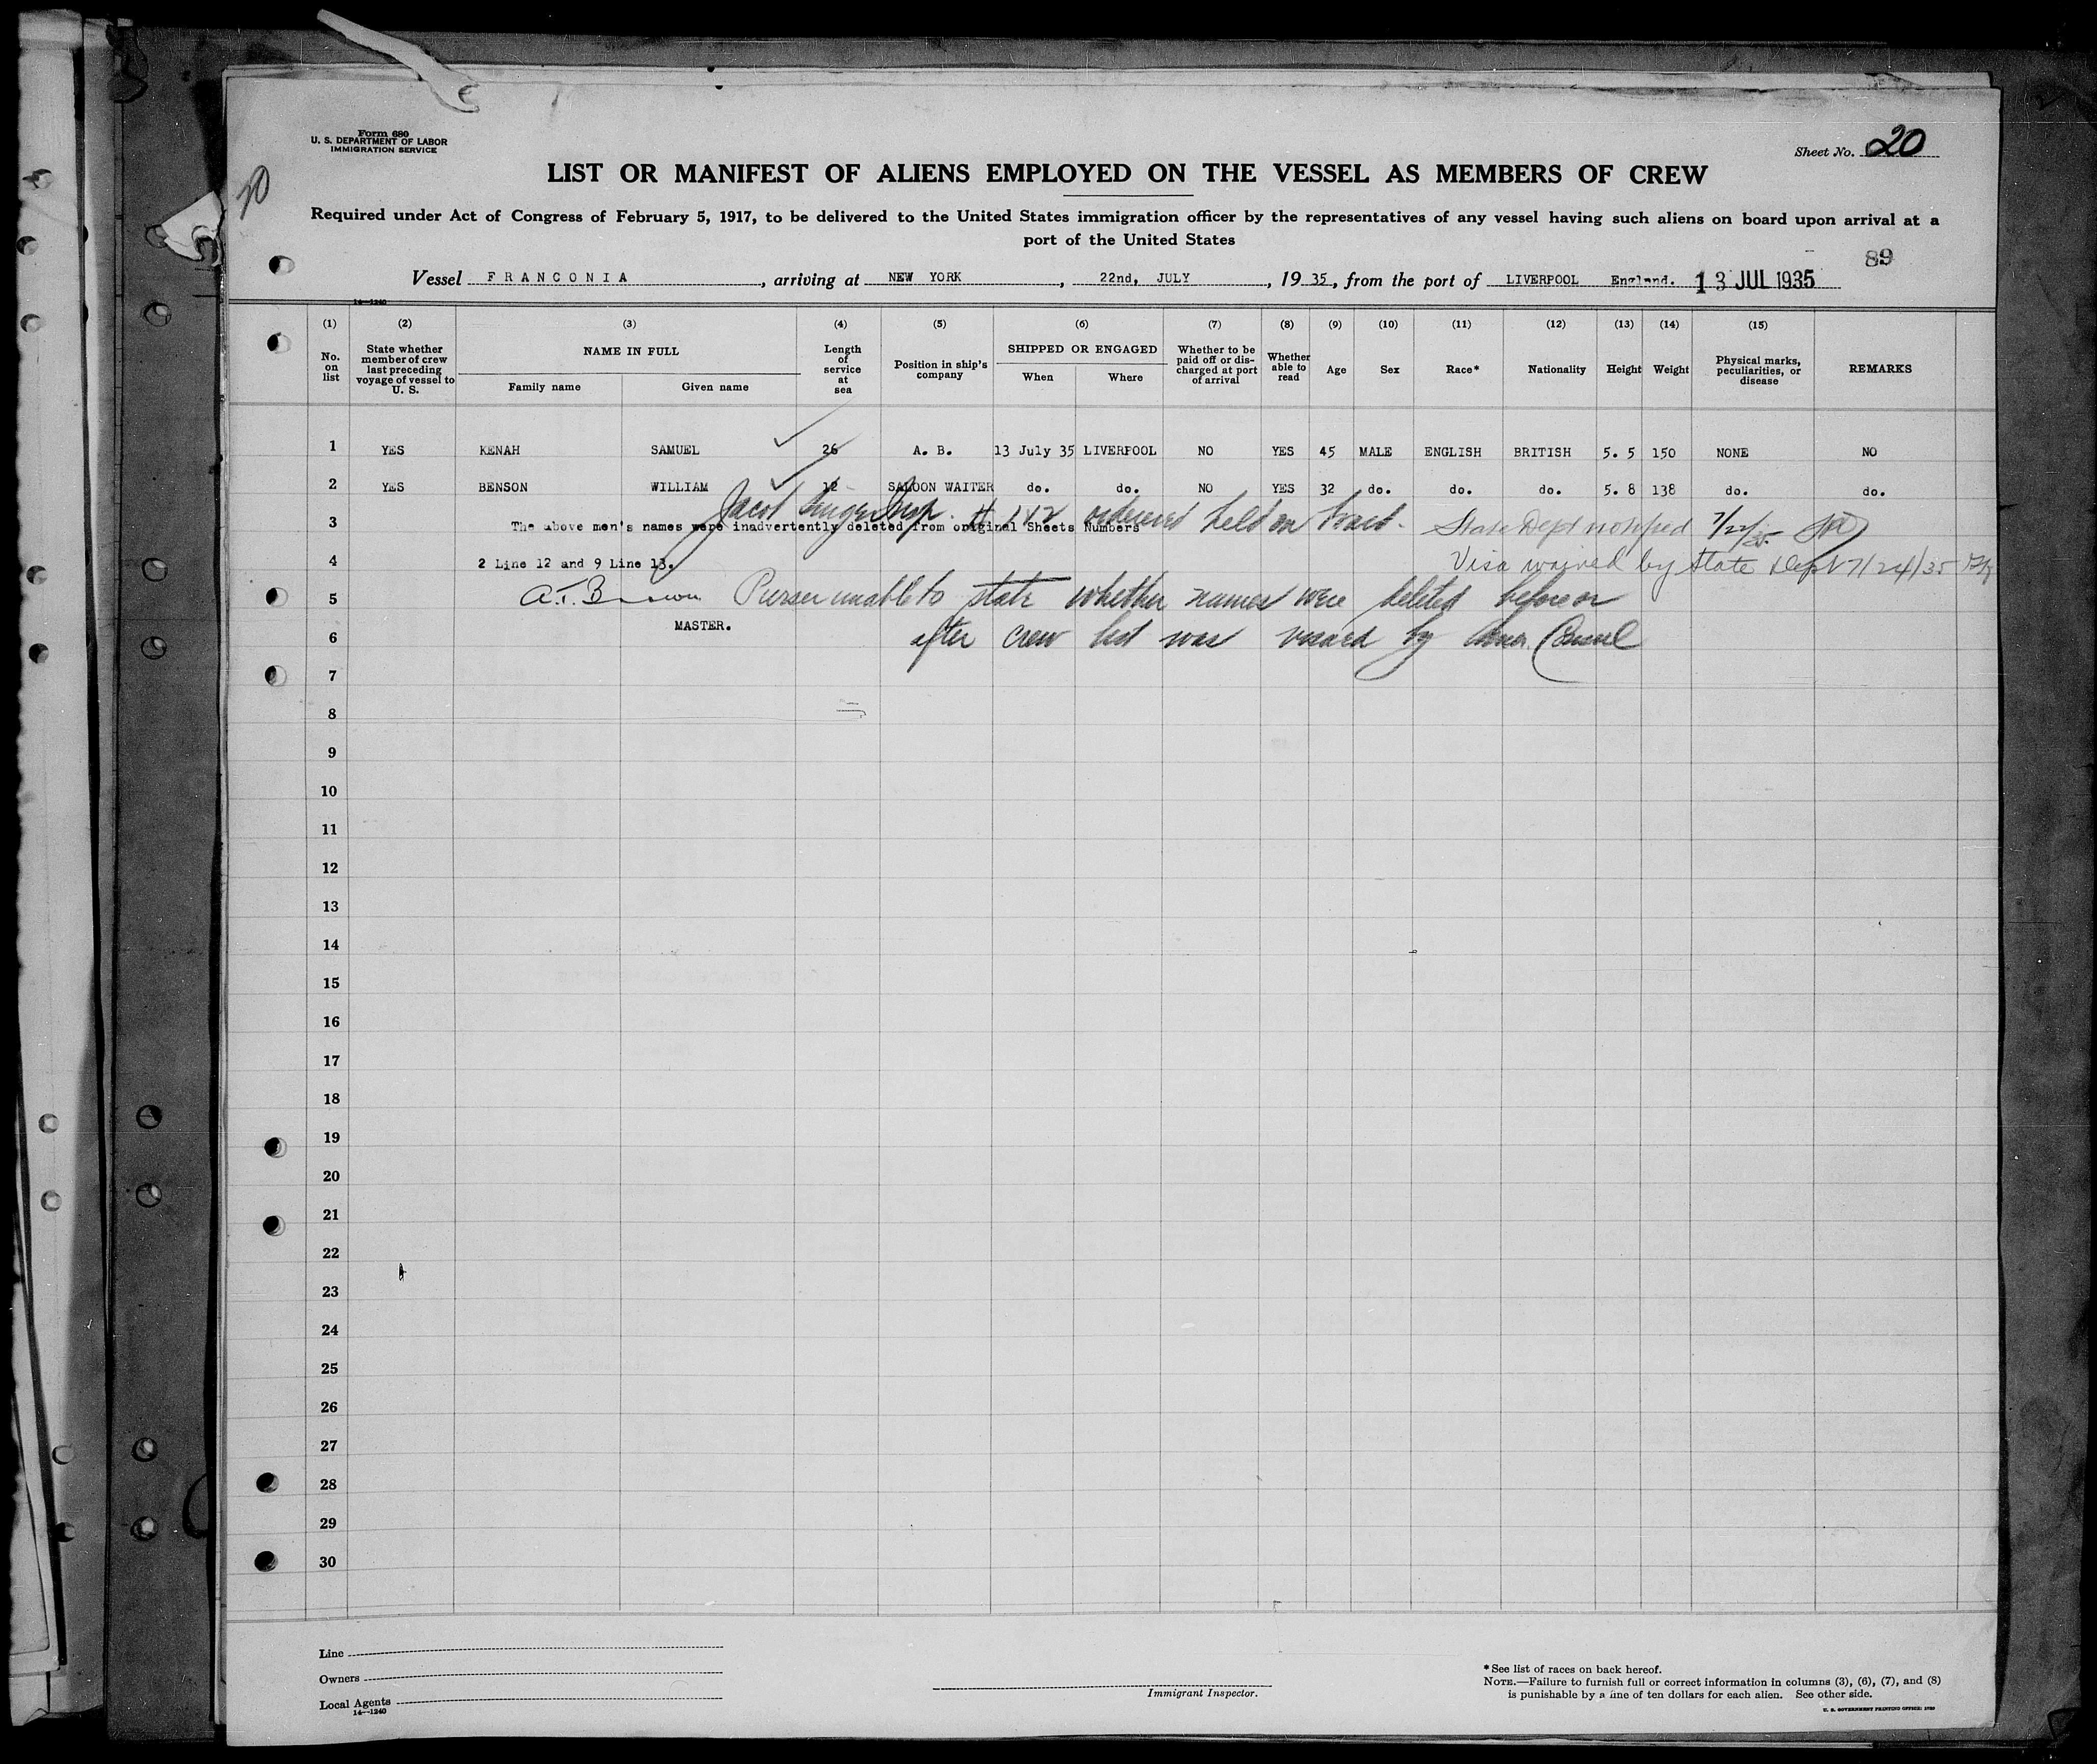 Form 680
U. S. DEPARTMENT OF LABOR
IMMIGRATION SERVICE
Sheet No. 20
20
LIST OR MANIFEST OF ALIENS EMPLOYED ON THE VESSEL AS MEMBERS OF CREW
Required under Act of Congress of February 5, 1917, to be delivered to the United States immigration officer by the representatives of any vessel having such aliens on board upon arrival at a
port of the United States
89
Vessel FRANCONIA, arriving at NEW YORK, 22nd, JULY, 19 35, from the port of LIVERPOOL England. 13 JUL 1935
14-1240
(1) (2) (3) (4) (5) (6) (7) (8) (9) (10) (11) (12) (13) (14) (15)
No. on list
State whether member of crew last preceding voyage of vessel to U. S.
NAME IN FULL
Family name
Given name
Length of service at sea
Position in ship's company
SHIPPED OR ENGAGED
When
Where
Whether to be paid off or discharged at port of arrival
Whether able to read
Age
Sex
Race*
Nationality
Height
Weight
Physical marks, peculiarities, or disease
REMARKS
1 YES KENAH SAMUEL 26 A. B. 13 July 35 LIVERPOOL NO YES 45 MALE ENGLISH BRITISH 5. 5 150 NONE NO
2 YES BENSON WILLIAM 12 SALOON WAITER do. do. NO YES 32 do. do. do. 5. 8 138 do. do.
Jacob Insp. # 1 & 2 ordered held on board. State Dept notified 7/22/35
3 The above men's names were inadvertently deleted from original Sheets Numbers
4 2 Line 12 and 9 Line 13.
Visa waived by State Dept 7/24/35
5 A.T. Brown Purser unable to state whether names were deleted before or
MASTER.
6 after crew list was visaed by Amer. Consul
7
8
9
10
11
12
13
14
15
16
17
18
19
20
21
22
23
24
25
26
27
28
29
30
Line
Owners
Local Agents
14-1240
Immigrant Inspector.
* See list of races on back hereof.
NOTE.—Failure to furnish full or correct information in columns (3), (6), (7), and (8)
is punishable by a fine of ten dollars for each alien. See other side.
U. S. GOVERNMENT PRINTING OFFICE: